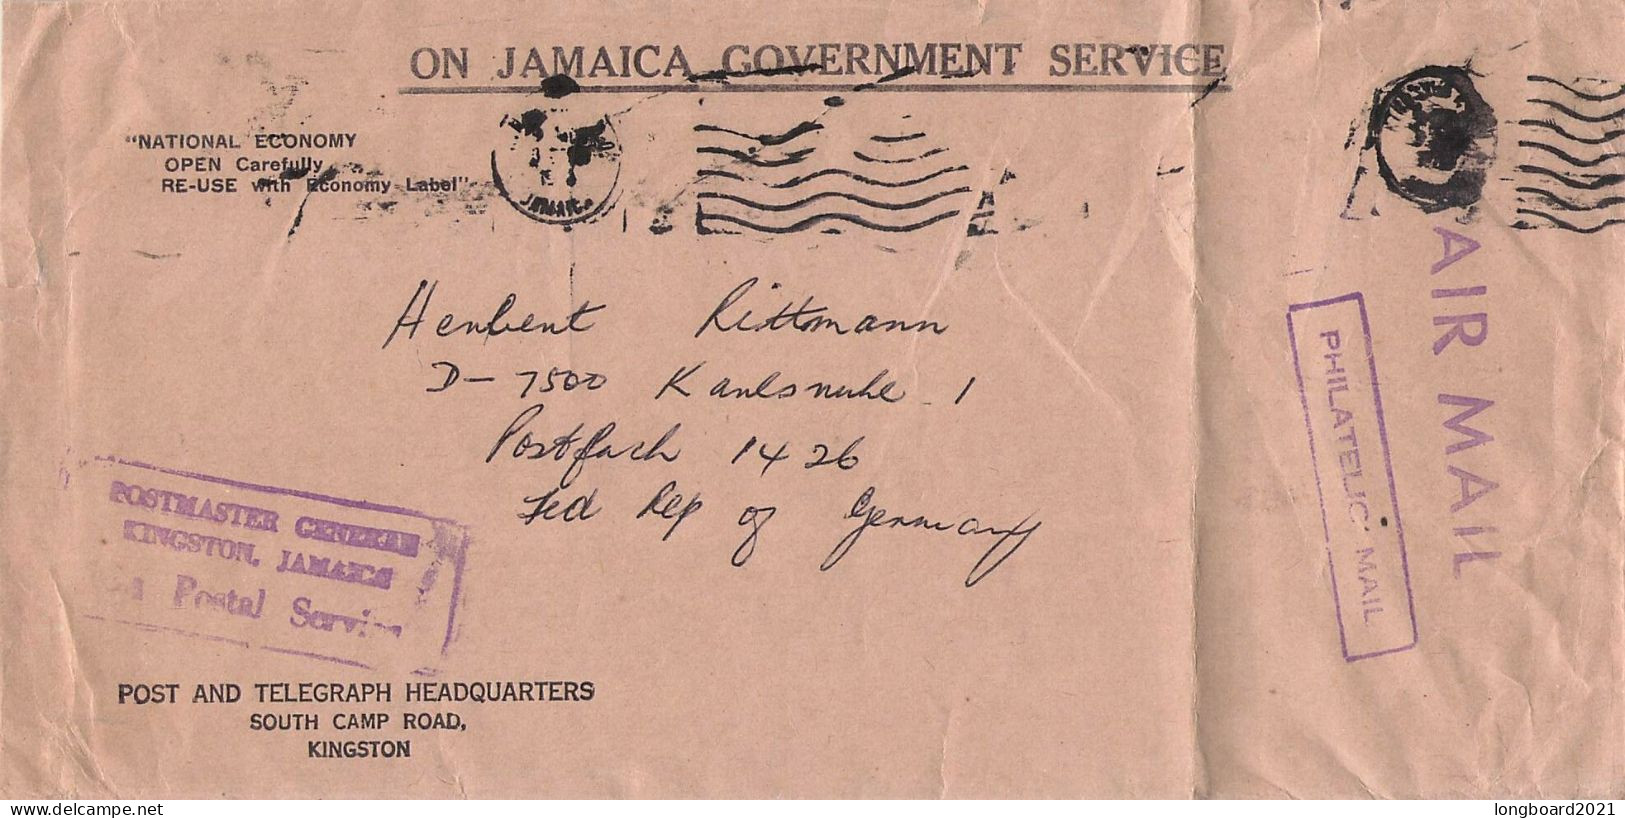 ON JAMAICA GOVERNMENT SERVICE
"NATIONAL ECONOMY
OPEN Carefully
RE-USE with Economy Label"
JAMAICA
KINGSTON
AIR MAIL
PHILATELIC MAIL
Herbert Rittmann
D-7500 Karlsruhe 1
Postfach 1426
Fed Rep of Germany
POSTMASTER GENERAL
KINGSTON, JAMAICA
Postal Service
POST AND TELEGRAPH HEADQUARTERS
SOUTH CAMP ROAD,
KINGSTON
longboard2021